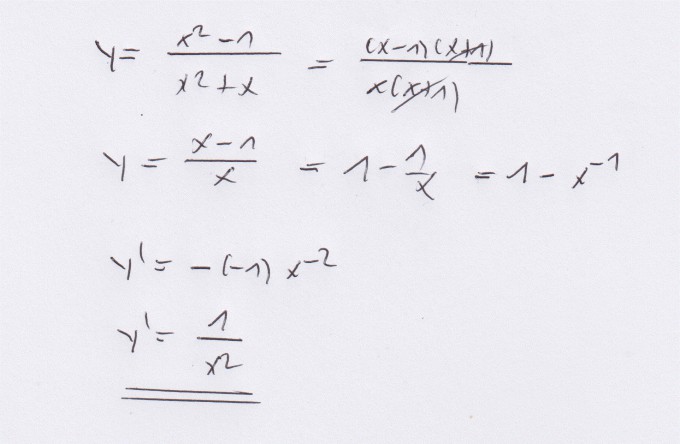 y = (x² - 1)/(x² + x) = ((x-1)(x+1))/(x(x+1))
y = (x - 1)/x = 1 - 1/x = 1 - x⁻¹
y' = -(-1) x⁻²
y' = 1/x²